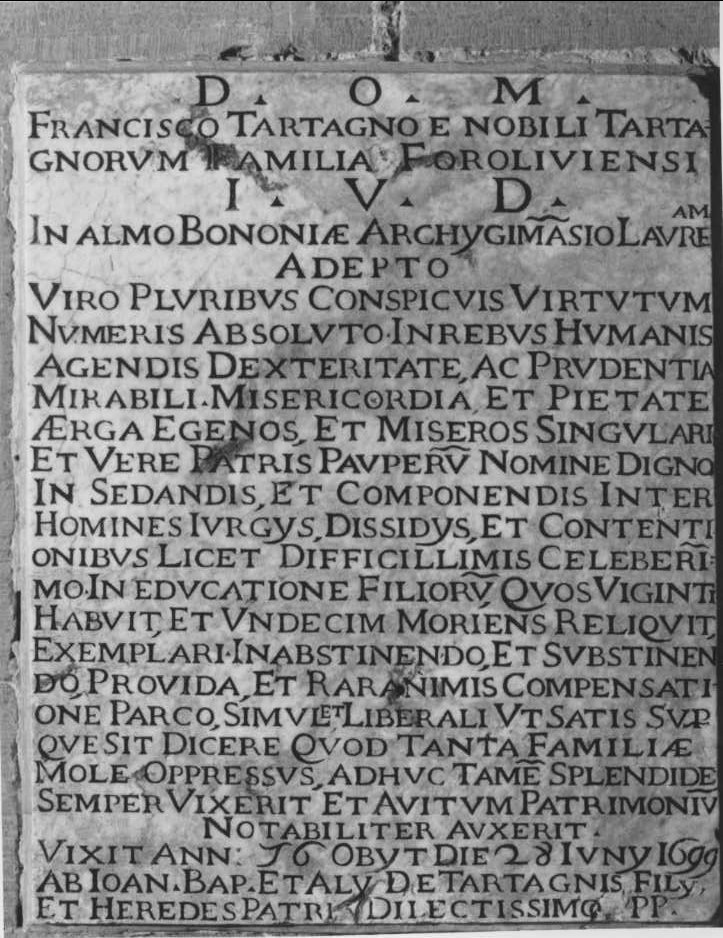 D. O. M.
FRANCISCO TARTAGNO E NOBILI TARTA-
GNORVM FAMILIA FOROLIVIENSI
I. V. D.
IN ALMO BONONIÆ ARCHYGIM̃ASIO LAVREAM
ADEPTO
VIRO PLVRIBVS CONSPICVIS VIRTVTVM
NVMERIS ABSOLVTO. IN REBVS HVMANIS
AGENDIS DEXTERITATE, AC PRVDENTIA
MIRABILI. MISERICORDIA, ET PIETATE
ÆRGA EGENOS, ET MISEROS SINGVLARI
ET VERE PATRIS PAVPERṼ NOMINE DIGNO
IN SEDANDIS, ET COMPONENDIS INTER
HOMINES IVRGYS, DISSIDYS, ET CONTENTI
ONIBVS LICET DIFFICILLIMIS CELEBERĨ-
MO. IN EDVCATIONE FILIORṼ, QVOS VIGINTI
HABVIT, ET VNDECIM MORIENS RELIQVIT,
EXEMPLARI. IN ABSTINENDO, ET SVBSTINEN
DO, PROVIDA, ET RARA NIMIS COMPENSATI-
ONE PARCO, SIMVL ET LIBERALI VT SATIS SVP
QVE SIT DICERE QVOD TANTA FAMILIÆ
MOLE OPPRESSVS, ADHVC TAMẼ SPLENDIDE
SEMPER VIXERIT, ET AVITVM PATRIMONIṼ
NOTABILITER AVXERIT.
VIXIT ANN: 76 OBYT DIE 28 IVNY 1699
AB IOAN. BAP. ET ALY DE TARTAGNIS FILY,
ET HEREDES PATRI DILECTISSIMO PP.